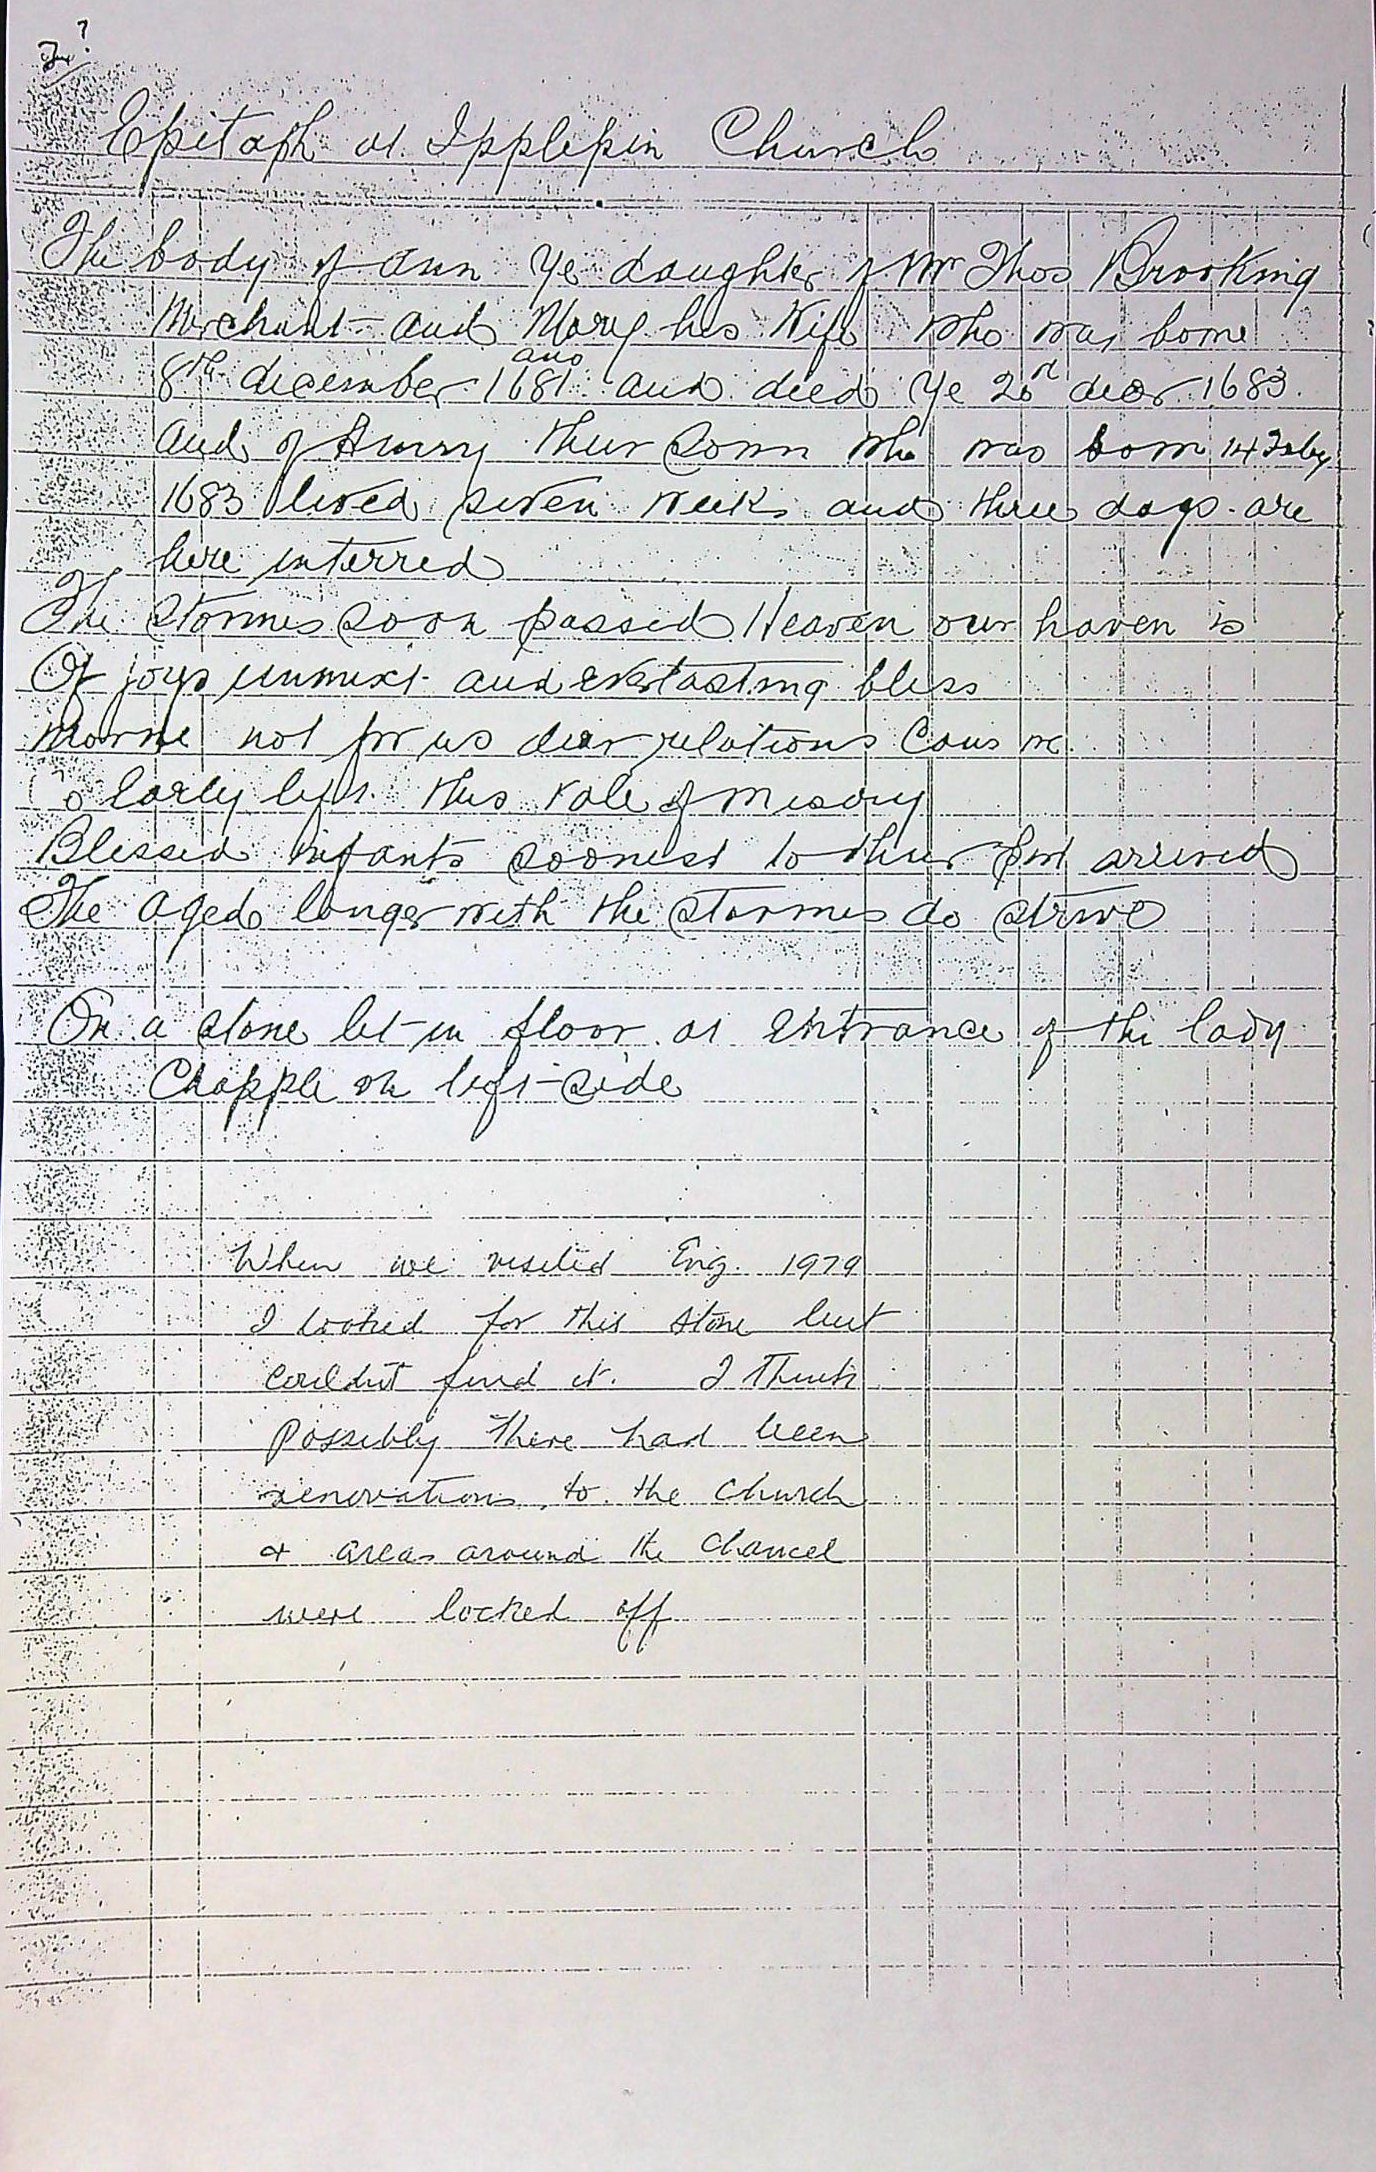 Epitaph at Ipplepin Church
The body of Ann Ye daughter of Mr Thos Brooking
Merchant and Mary his Wife who was borne
8th december 1681 and died Ye 20 decr 1683
ano
and of their Sonn who was born 14 Feby
1683 lived seven weeks and three days are
here interred
The stormes soon passed Heaven our haven is
Of joys unmixt and everlasting bliss
Morne not for us dear relations Caus we
So Early left this vale of misery
Blessed infants soonest to their port arrived
The aged longer with the stormes do strive
On a stone let in floor at Entrance of the lady
Chapple on left side
When we visited Eng. 1979
I looked for this stone but
couldn't find it. I think
possibly there had been
renovations to the church
& areas around the chancel
were locked off